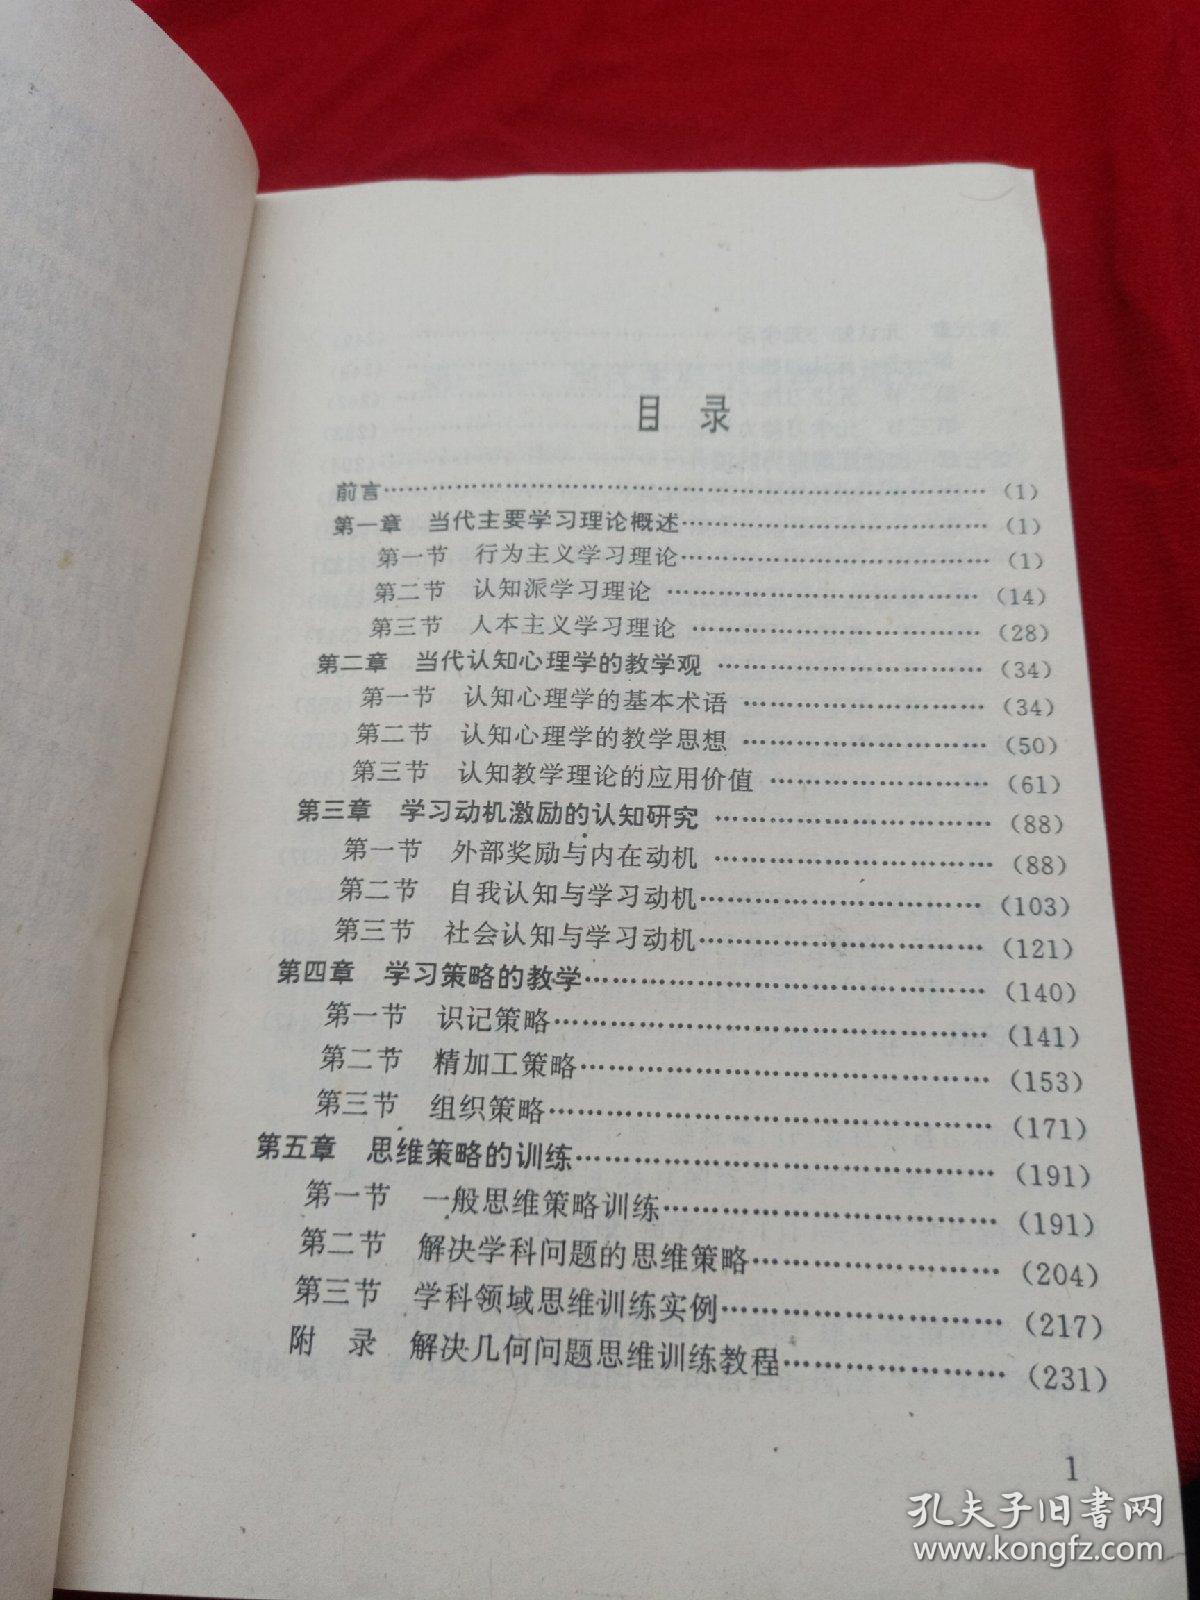 目 录
前言……………………………………………………………（1）
第一章 当代主要学习理论概述………………………………（1）
第一节 行为主义学习理论………………………………（1）
第二节 认知派学习理论 ………………………………（14）
第三节 人本主义学习理论 ……………………………（28）
第二章 当代认知心理学的教学观 …………………………（34）
第一节 认知心理学的基本术语 ………………………（34）
第二节 认知心理学的教学思想 ………………………（50）
第三节 认知教学理论的应用价值 ……………………（61）
第三章 学习动机激励的认知研究 …………………………（88）
第一节 外部奖励与内在动机 …………………………（88）
第二节 自我认知与学习动机…………………………（103）
第三节 社会认知与学习动机…………………………（121）
第四章 学习策略的教学……………………………………（140）
第一节 识记策略………………………………………（141）
第二节 精加工策略……………………………………（153）
第三节 组织策略………………………………………（171）
第五章 思维策略的训练……………………………………（191）
第一节 一般思维策略训练……………………………（191）
第二节 解决学科问题的思维策略……………………（204）
第三节 学科领域思维训练实例………………………（217）
附 录 解决几何问题思维训练教程…………………（231）
1
孔夫子旧书网
www.kongfz.com